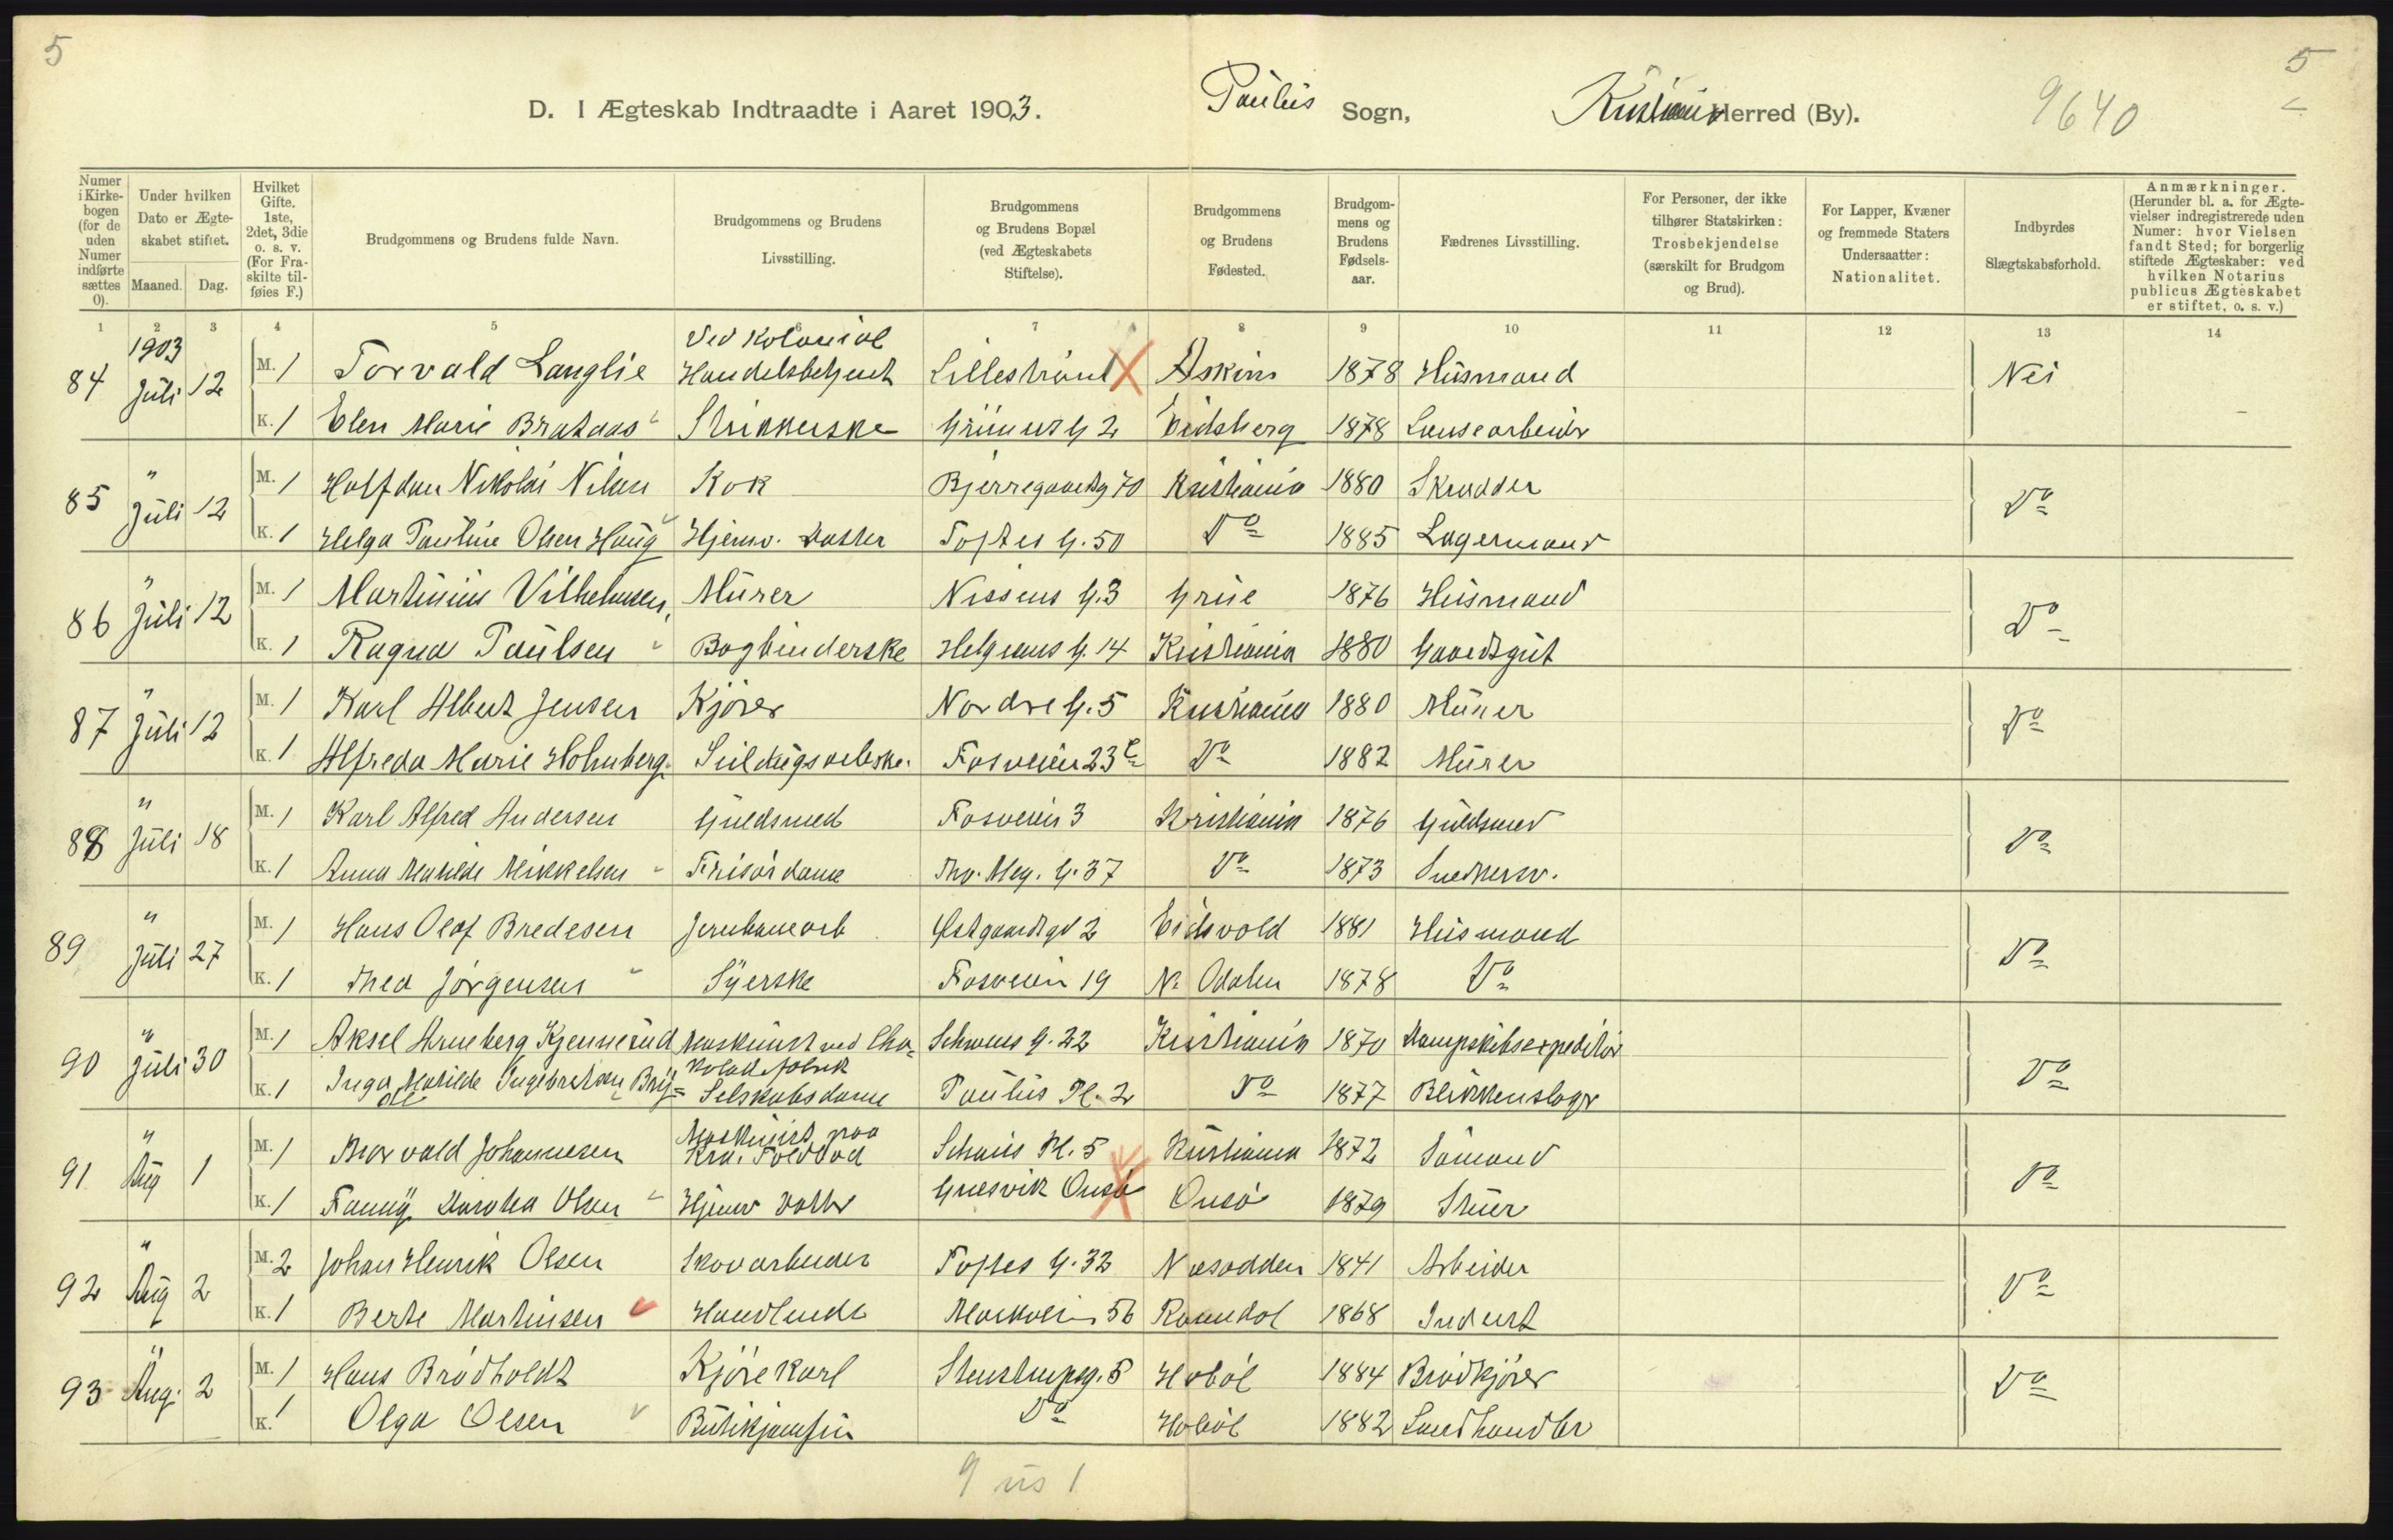 5
5
D. I Ægteskab Indtraadte i Aaret 1903.
Paulus Sogn,
Kristiania Herred (By).
9640
Numer i Kirkebogen (for de uden Numer indførte sættes 0).
Under hvilken Dato er Ægteskabet stiftet.
Maaned. Dag.
Hvilket Gifte. 1ste, 2det, 3die o. s. v. (For Fraskilte tilføies F.)
Brudgommens og Brudens fulde Navn.
Brudgommens og Brudens Livsstilling.
Brudgommens og Brudens Bopæl (ved Ægteskabets Stiftelse).
Brudgommens og Brudens Fødested.
Brudgommens og Brudens Fødselsaar.
Fædrenes Livsstilling.
For Personer, der ikke tilhører Statskirken: Trosbekjendelse (særskilt for Brudgom og Brud).
For Lapper, Kvæner og fremmede Staters Undersaatter: Nationalitet.
Indbyrdes Slægtskabsforhold.
Anmærkninger. (Herunder bl. a. for Ægtevielser indregistrerede uden Numer: hvor Vielsen fandt Sted; for borgerlig stiftede Ægteskaber: ved hvilken Notarius publicus Ægteskabet er stiftet, o. s. v.)
1 2 3 4 5 6 7 8 9 10 11 12 13 14
1903 Ved Kolonial
84 Juli 12 M. 1 Torvald Langlie Handelsbetjent Lillestrøm Askim 1878 Husmand Nei
K. 1 Elen Marie Brataas Strikkerske Grüners G 2 Eidsberg 1878 Løusearbeider
85 " Juli 12 M. 1 Halfdan Nikolai Nilsen Kok Bjerregaardsg 70 Kristiania 1880 Skrædder Do
K. 1 Helga Pauline Olsen Haug Hjemv. Datter Toftes G. 50 Do 1885 Lagermand
86 " Juli 12 M. 1 Martinius Vilhelmsen Murer Nissens G. 3 Grue 1876 Husmand Do
K. 1 Ragna Paulsen Bogbinderske Helgesens G. 14 Kristiania 1880 Gaardsgut
87 " Juli 12 M. 1 Karl Albert Jensen Kjører Nordre G. 5 Kristiania 1880 Murer Do
K. 1 Alfreda Marie Holmberg Fosveien 23 Do 1882 Murer
88 " Juli 18 M. 1 Karl Alfred Andersen Guldsmed Fosveien 3 Kristiania 1876 Guldsmed Do
K. 1 Anna Matilde Mikkelsen Frisørdame Thv. Mey. G. 37 Do 1873 Snedkersv.
89 " Juli 27 M. 1 Hans Olaf Bredesen Jernbanearb Østgaardsgd 2 Eidsvold 1881 Husmand Do
K. 1 Thea Jørgensen Syerske Fosveien 19 N. Odalen 1878 Do
90 " Juli 30 M. 1 Aksel Arneberg Kjennerud Maskinist ved Cho= Schous G. 22 Kristiania 1870 Dampskibsexpeditør Do
kolade fabrik
K. 1 Inga Matilde Ingebretsen Selskabsdame Paulus Pl. 2 Do 1877 Blikkenslager
Maskinist paa
91 " Aug 1 M. 1 Johannesen Kra. Toldbod Schous Pl. 5 Kristiania 1872 Sømand Do
K. 1 Fanny Dorthea Olsen Hjemv Datter Gresvik Onsø Onsø 1879 Stuer
92 " Aug 2 M. 2 Johan Henrik Olsen Skovarbeider Toftes G. 32 Næsodden 1841 Arbeider Do
K. 1 Berte Martinsen Handlende Markvei 56 Romedal 1868 Inderst
93 " Aug. 2 M. 1 Hans Brødholdt Kjørekarl Stenstrupsg. 5 Hobøl 1884 Brødkjører Do
K. 1 Olga Olsen Butikjomfru Do Hobøl 1882 Landhandler
9 us 1